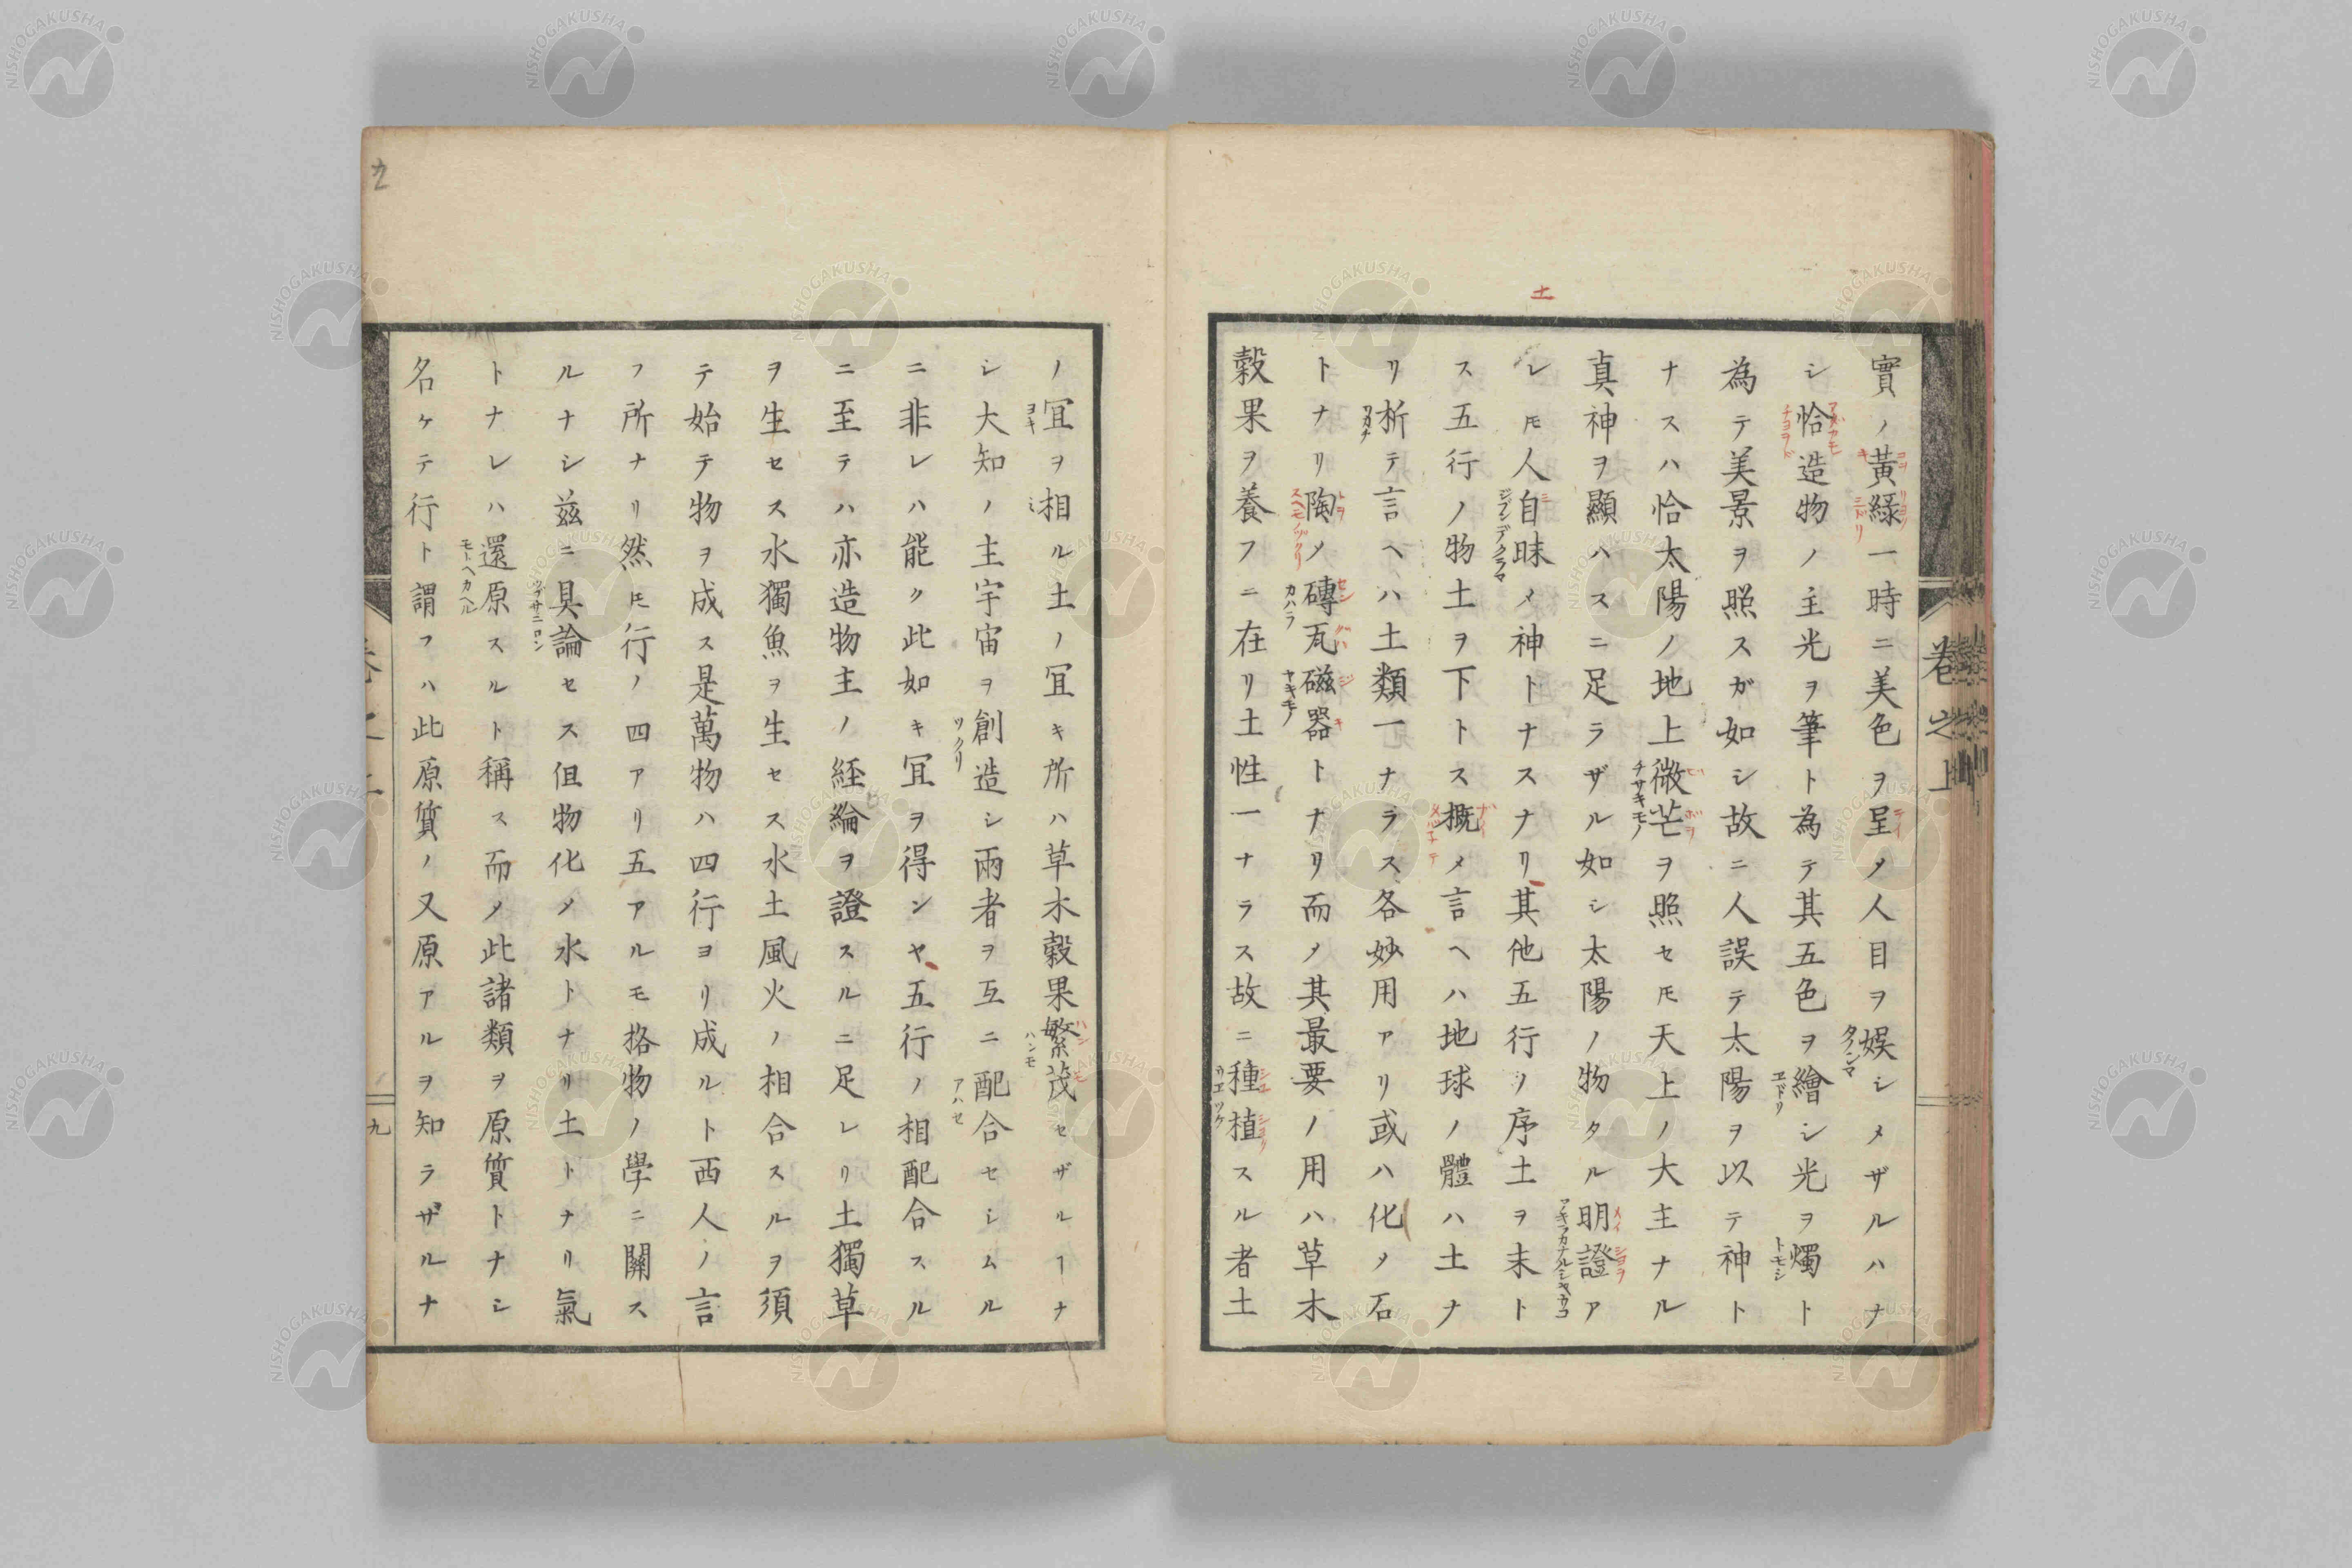 土
實ノ黃緑一時ニ美色ヲ呈メ人目ヲ娯シメザルハナ
シ恰造物ノ主光ヲ筆ト為テ其五色ヲ繪シ光ヲ燭ト
為テ美景ヲ照スガ如シ故ニ人誤テ太陽ヲ以テ神ト
ナスハ恰太陽ノ地上微芒ヲ照セ𪜈天上ノ大主ナル
真神ヲ顯ハスニ足ラザル如シ太陽ノ物タル明證ア
レ𪜈人自昧メ神トナスナリ其他五行ノ序土ヲ末ト
ス五行ノ物土ヲ下トス概メ言ヘハ地球ノ體ハ土ナ
リ析テ言ヘハ土類一ナラス各妙用アリ或ハ化メ石
トナリ陶メ磚瓦磁器トナリ而メ其最要ノ用ハ草木
穀果ヲ養フニ在リ土性一ナラス故ニ種植スル者土
卷之上
ノ冝ヲ相ル土ノ冝キ所ハ草木穀果繁茂セザルヿナ
シ大知ノ主宇宙ヲ創造シ兩者ヲ互ニ配合セシムル
ニ非レハ能ク此如キ冝ヲ得ンヤ五行ノ相配合スル
ニ至テハ亦造物主ノ経綸ヲ證スルニ足レリ土獨草
ヲ生セス水獨魚ヲ生セス水土風火ノ相合スルヲ須
テ始テ物ヲ成ス是萬物ハ四行ヨリ成ルト西人ノ言
フ所ナリ然𪜈行ノ四アリ五アルモ格物ノ學ニ關ス
ルナシ茲ニ具論セス但物化メ水トナリ土トナリ氣
トナレハ還原スルト稱ス而メ此諸類ヲ原質トナシ
名ケテ行ト謂フハ此原質ノ又原アルヲ知ラザルナ
九